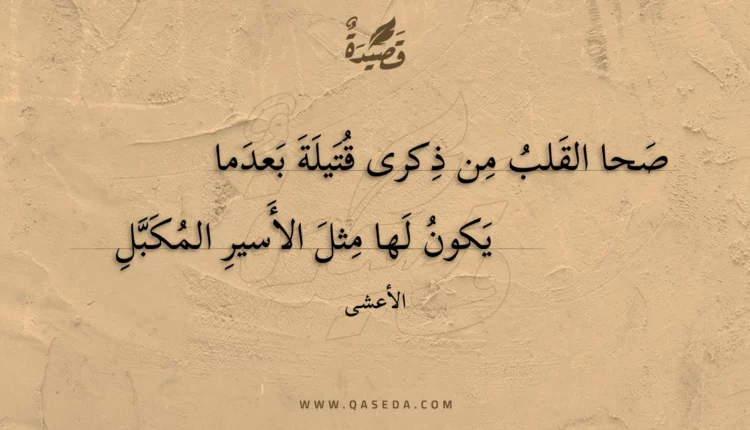 قَصِيدَةٌ
صَحا القَلبُ مِن ذِكرى قُتَيلَةَ بَعدَما
يَكونُ لَها مِثلَ الأَسيرِ المُكَبَّلِ
الأعشى
WWW.QASEDA.COM